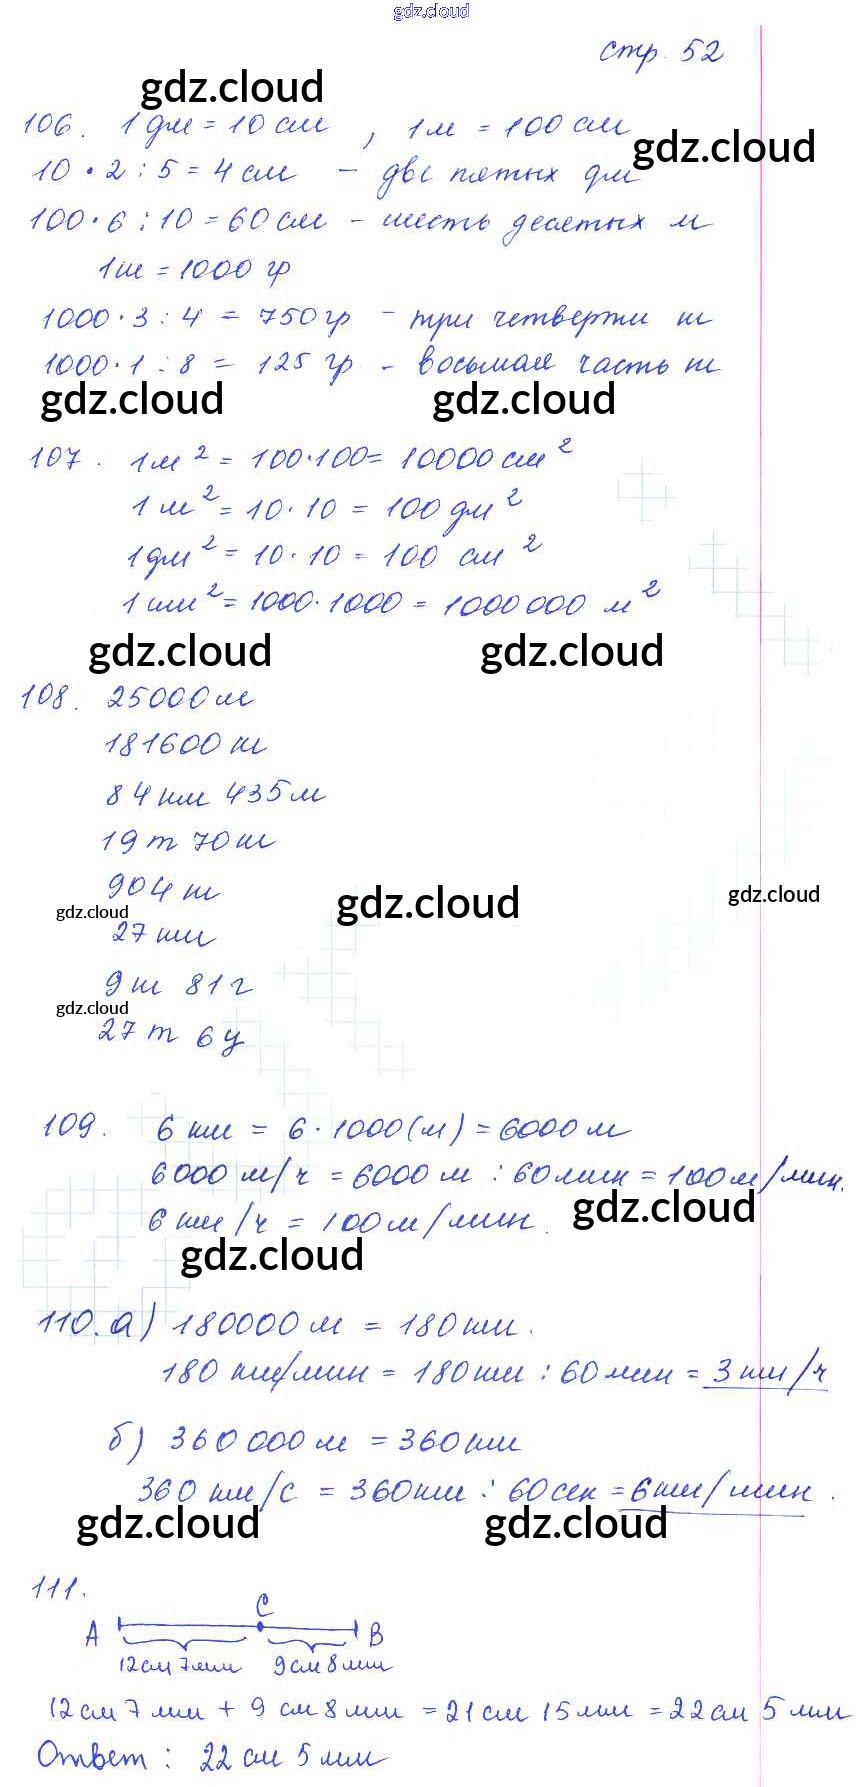 gdz.cloud
стр. 52
gdz.cloud
106. 1 дм = 10 см , 1 м = 100 см
gdz.cloud
10 · 2 : 5 = 4 см – две пятых дм
100 · 6 : 10 = 60 см – шесть десятых м
1 кг = 1000 гр
1000 · 3 : 4 = 750 гр – три четверти кг
1000 · 1 : 8 = 125 гр – восьмая часть кг
gdz.cloud gdz.cloud
107. 1 м² = 100 · 100 = 10000 см²
1 м² = 10 · 10 = 100 дм²
1 дм² = 10 · 10 = 100 см²
1 км² = 1000 · 1000 = 1000 000 м²
gdz.cloud gdz.cloud
108. 25000 м
181600 кг
84 км 435 м
19 т 70 кг
904 кг
gdz.cloud gdz.cloud gdz.cloud
27 км
9 кг 81 г
gdz.cloud
27 т 6 ц
109. 6 км = 6 · 1000 (м) = 6000 м
6000 м/ч = 6000 м : 60 мин = 100 м/мин.
6 км/ч = 100 м/мин.
gdz.cloud
gdz.cloud
110. а) 180000 м = 180 км.
180 км/мин = 180 км : 60 мин = 3 км/ч
б) 360 000 м = 360 км
360 км/с = 360 км : 60 сек = 6 км/мин.
gdz.cloud gdz.cloud
111.
C
A B
12 см 7 мм 9 см 8 мм
12 см 7 мм + 9 см 8 мм = 21 см 15 мм = 22 см 5 мм
Ответ: 22 см 5 мм